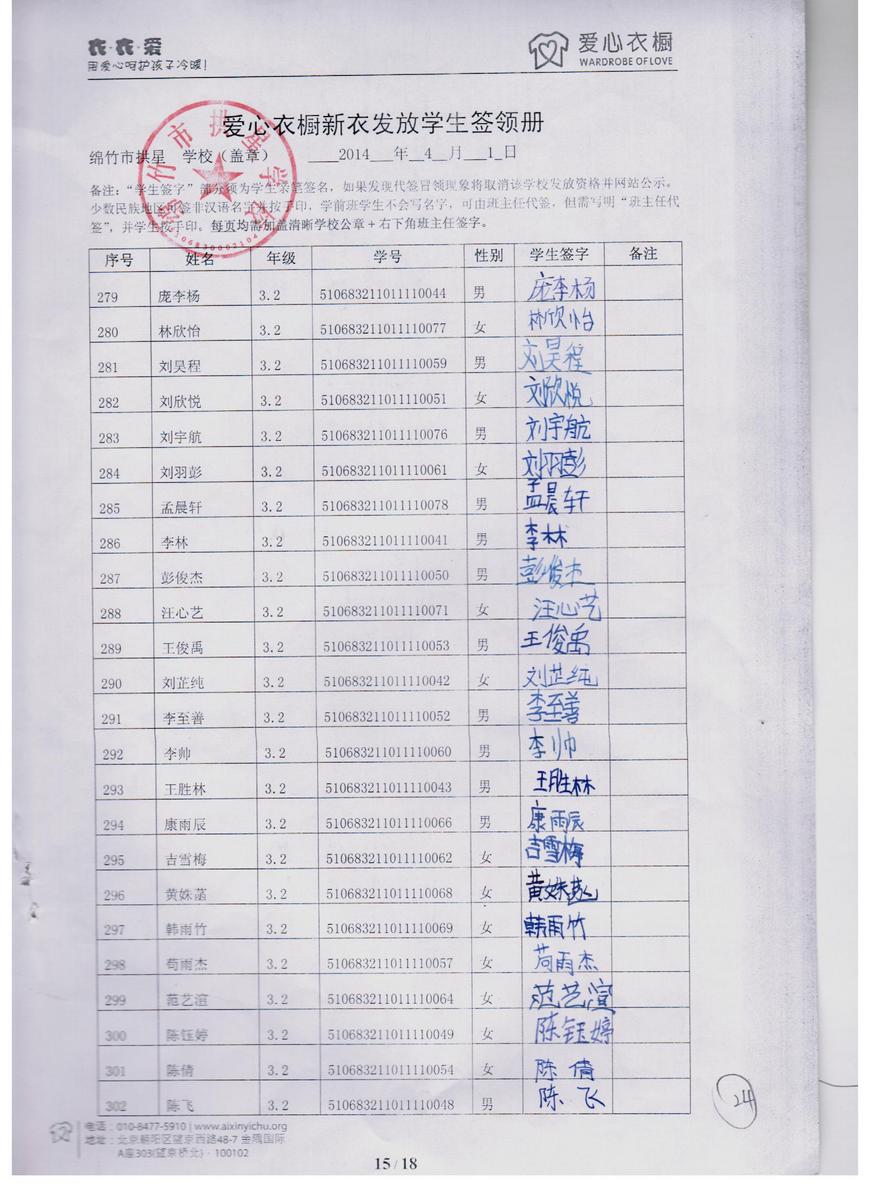 衣·衣·爱
用爱心呵护孩子冷暖!
爱心衣橱
WARDROBE OF LOVE
爱心衣橱新衣发放学生签领册
绵竹市拱星 学校(盖章) 2014 年 4 月 1 日
备注:“学生签字”部分须为学生亲笔签名,如果发现代签冒领现象将取消该学校发放资格并网站公示。
少数民族地区可签非汉语名字并按手印,学前班学生不会写名字,可由班主任代签,但需写明“班主任代
签”,并学生按手印。每页均需加盖清晰学校公章+右下角班主任签字。
序号 姓名 年级 学号 性别 学生签字 备注
279 庞李杨 3.2 510683211011110044 男 庞李杨
280 林欣怡 3.2 510683211011110077 女 林欣怡
281 刘昊程 3.2 510683211011110059 男 刘昊程
282 刘欣悦 3.2 510683211011110051 女 刘欣悦
283 刘宇航 3.2 510683211011110076 男 刘宇航
284 刘羽彭 3.2 510683211011110061 女 刘羽彭
285 孟晨轩 3.2 510683211011110078 男 孟晨轩
286 李林 3.2 510683211011110041 男 李林
287 彭俊杰 3.2 510683211011110050 男 彭俊杰
288 汪心艺 3.2 510683211011110071 女 汪心艺
289 王俊禹 3.2 510683211011110053 男 王俊禹
290 刘芷纯 3.2 510683211011110042 女 刘芷纯
291 李至善 3.2 510683211011110052 男 李至善
292 李帅 3.2 510683211011110060 男 李帅
293 王胜林 3.2 510683211011110043 男 王胜林
294 康雨辰 3.2 510683211011110066 男 康雨辰
295 吉雪梅 3.2 510683211011110062 女 吉雪梅
296 黄姝菡 3.2 510683211011110068 女 黄姝菡
297 韩雨竹 3.2 510683211011110069 女 韩雨竹
298 苟雨杰 3.2 510683211011110057 女 苟雨杰
299 范艺渲 3.2 510683211011110064 女 范艺渲
300 陈钰婷 3.2 510683211011110049 女 陈钰婷
301 陈倩 3.2 510683211011110054 女 陈倩
302 陈飞 3.2 510683211011110048 男 陈飞
24
电话:010-8477-5910 | www.aixinyichu.org
地址:北京朝阳区望京西路48-7 金隅国际
A座303(望京桥北)·100102
15 / 18